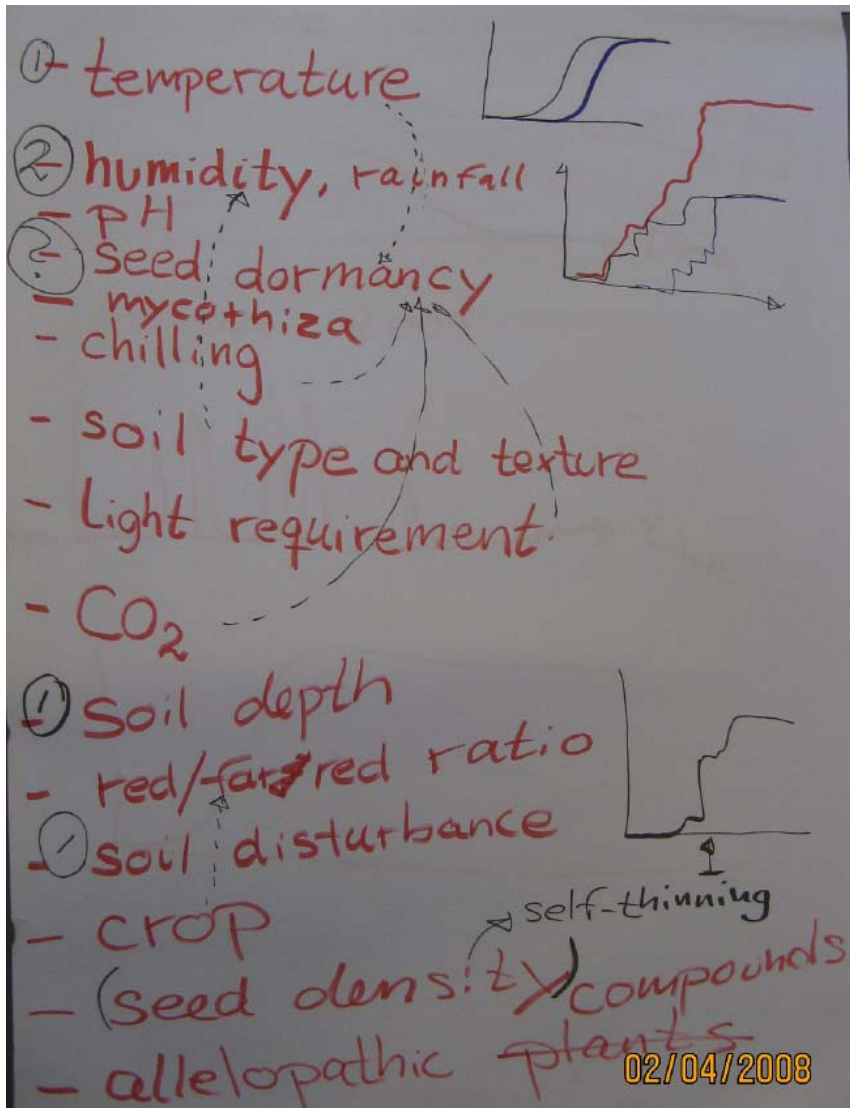 ①- temperature
②- humidity, rainfall
- pH
?- seed dormancy
- mycothiza
- chilling
- soil type and texture
- Light requirement
- CO₂
①- Soil depth
- red/far red ratio
- soil disturbance
- crop
self-thinning
- (seed density) compounds
- allelopathic plants
02/04/2008